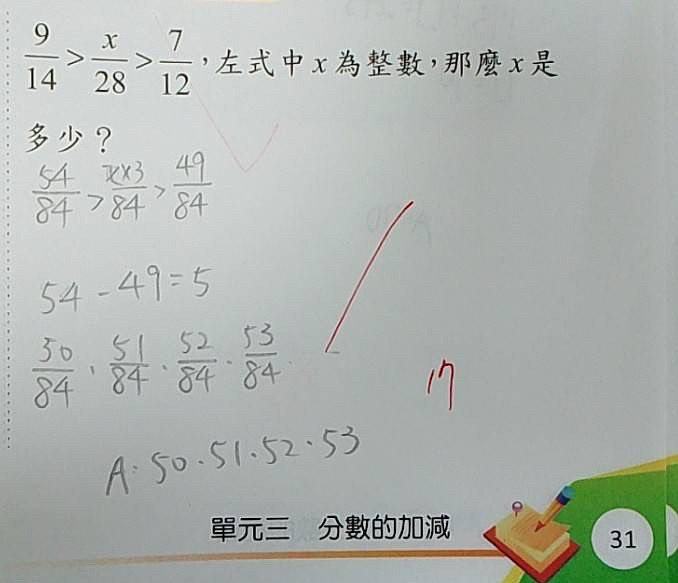 9/14 > x/28 > 7/12，左式中 x 為整數，那麼 x 是
多少？
54/84 > x×3/84 > 49/84
54 - 49 = 5
50/84、51/84、52/84、53/84
A：50、51、52、53
17
單元三 分數的加減
31